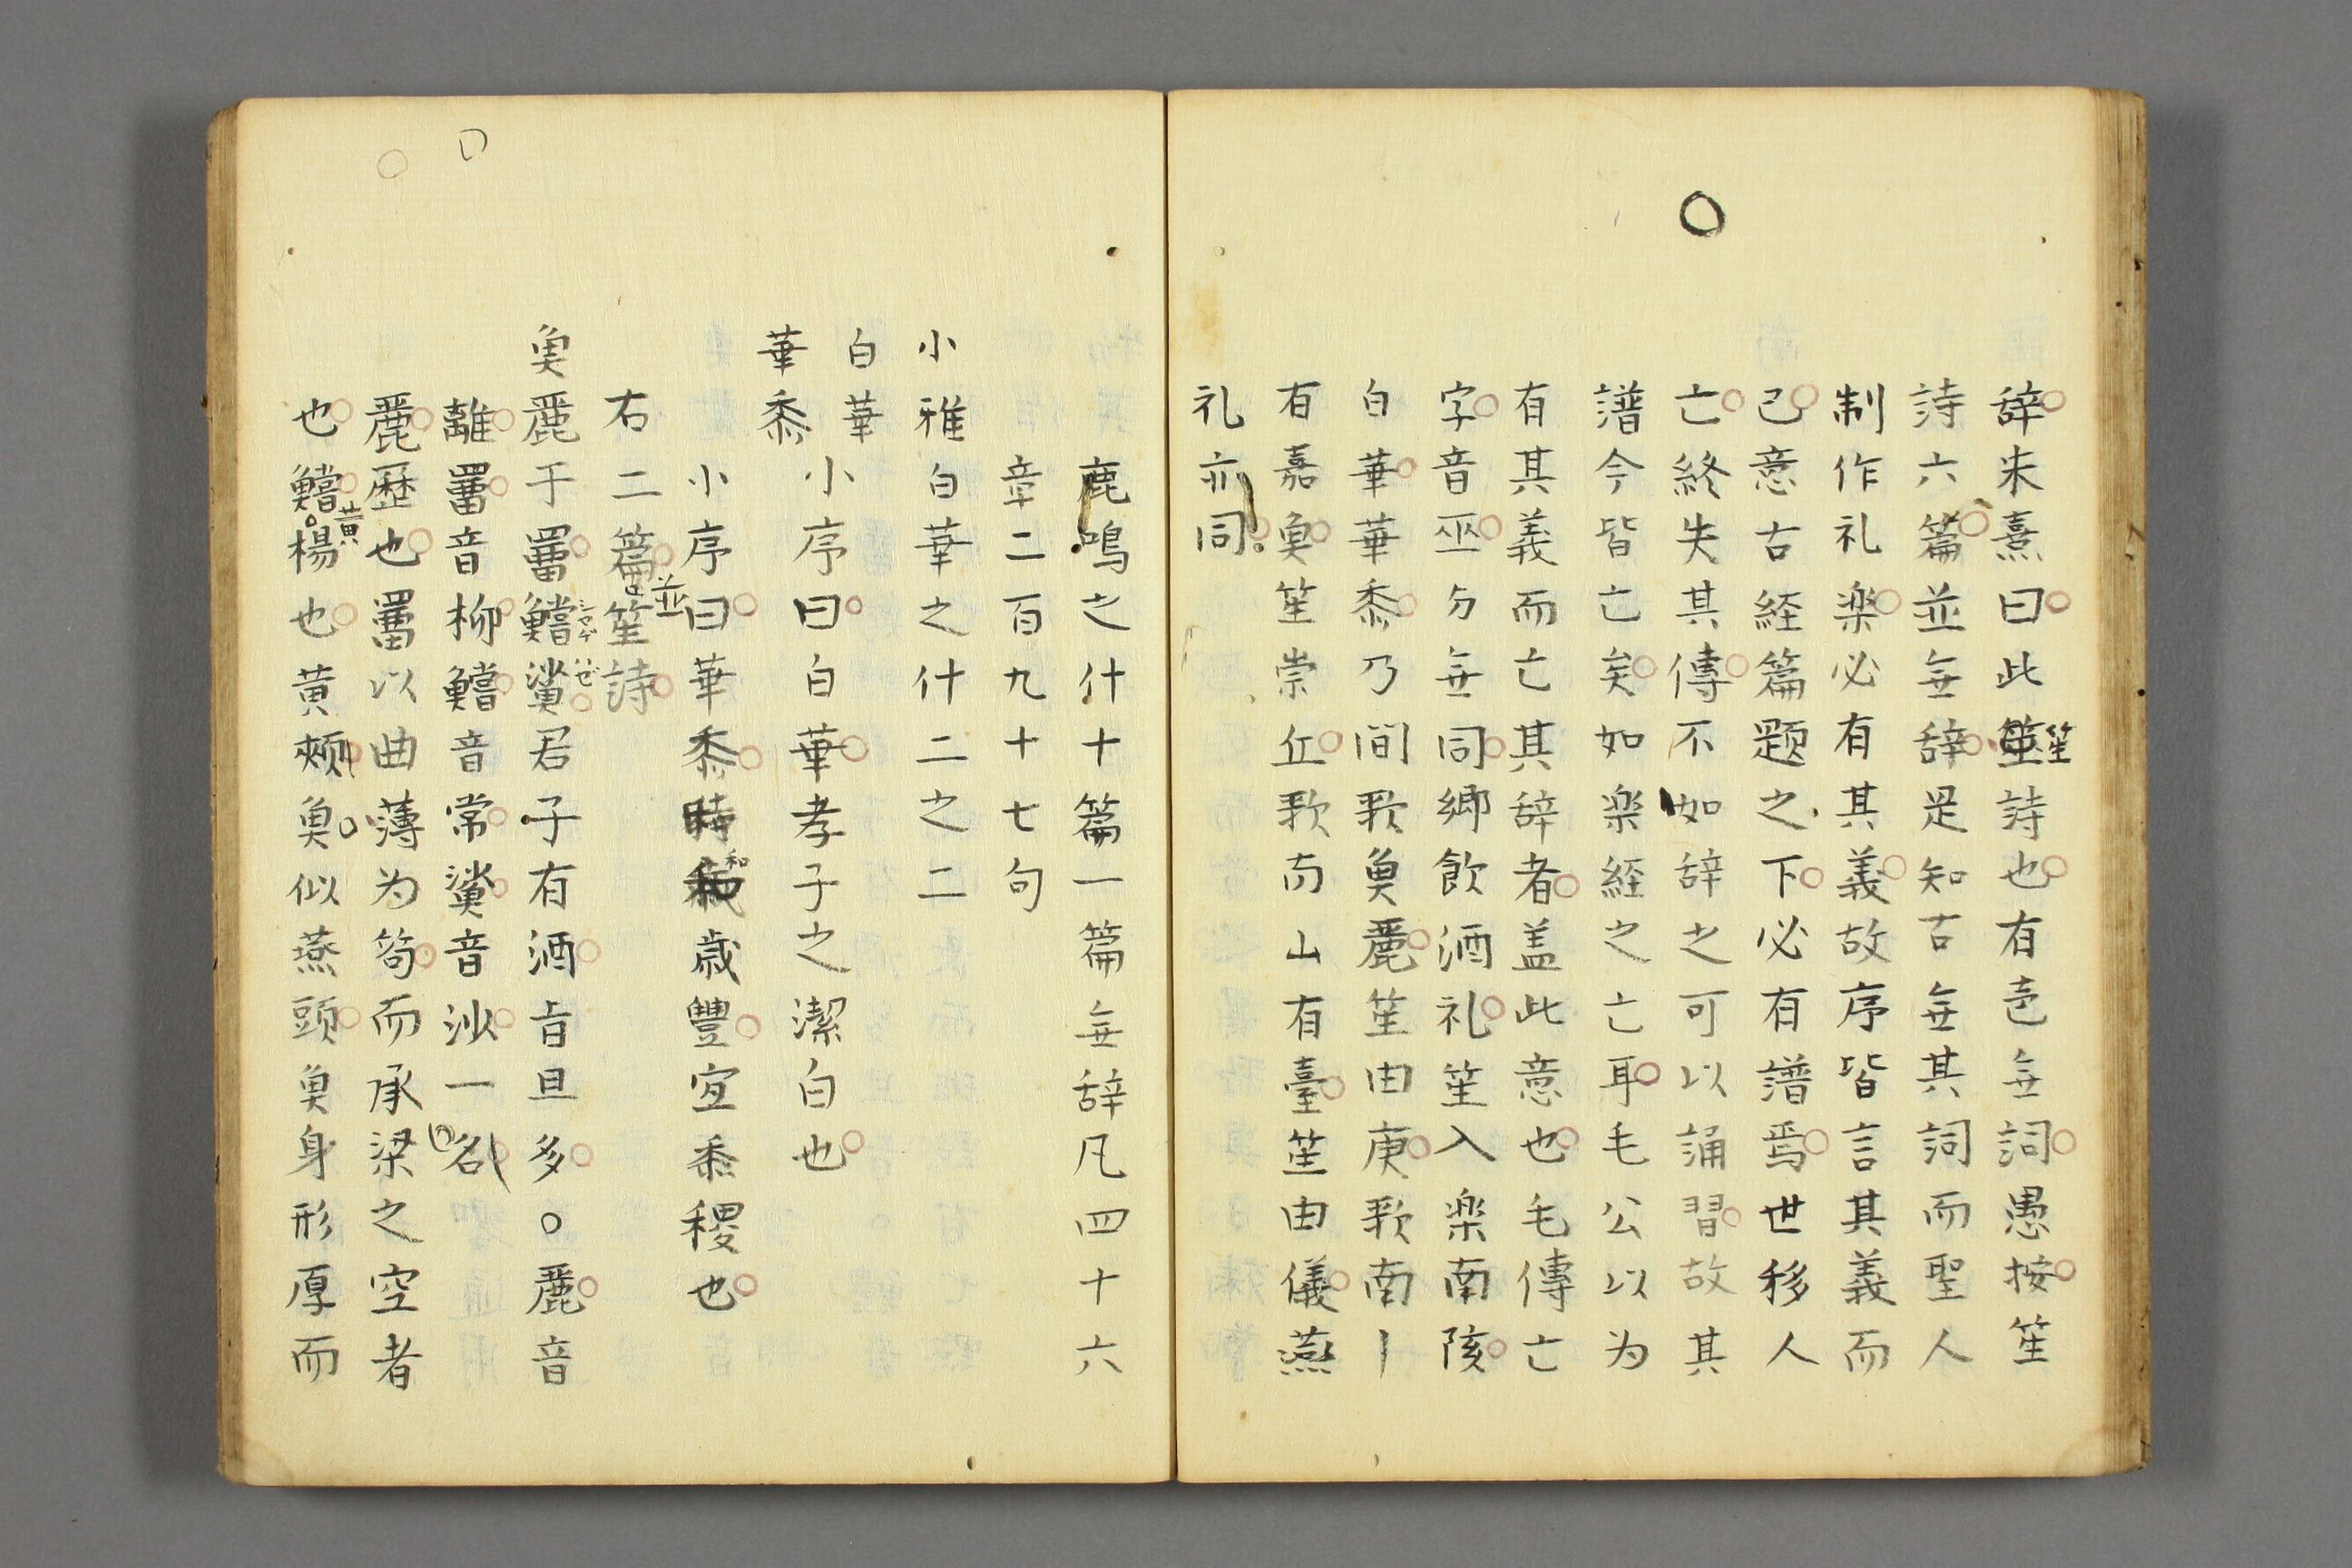 辞朱熹曰此笙詩也有声無詞愚按笙
詩六篇並無辞是知古無其詞而聖人
制作礼楽必有其義故序皆言其義而
已意古経篇題之下必有譜焉世移人
亡終失其傳不如辞之可以誦習故其
譜今皆亡矣如楽経之亡耳毛公以为
有其義而亡其辞者盖此意也毛傳亡
字音巫勿無同鄉飲酒礼笙入楽南陔
白華華黍乃間歌魚麗笙由庚歌南丨
有嘉魚笙崇丘歌南山有臺笙由儀燕
礼亦同
鹿鳴之什十篇一篇無辞凡四十六
章二百九十七句
小雅白華之什二之二
白華
小序曰白華孝子之潔白也
華黍
小序曰華黍時和歳豐宜黍稷也
右二篇並笙詩
魚麗于罶鱨鯊君子有酒旨且多○麗音
シヤウ はぜ
離罶音柳鱨音常鯊音沙一名
麗歴也罶以曲薄为笱而承梁之空者
也鱨黄楊也黄頰魚○似燕頭魚身形厚而